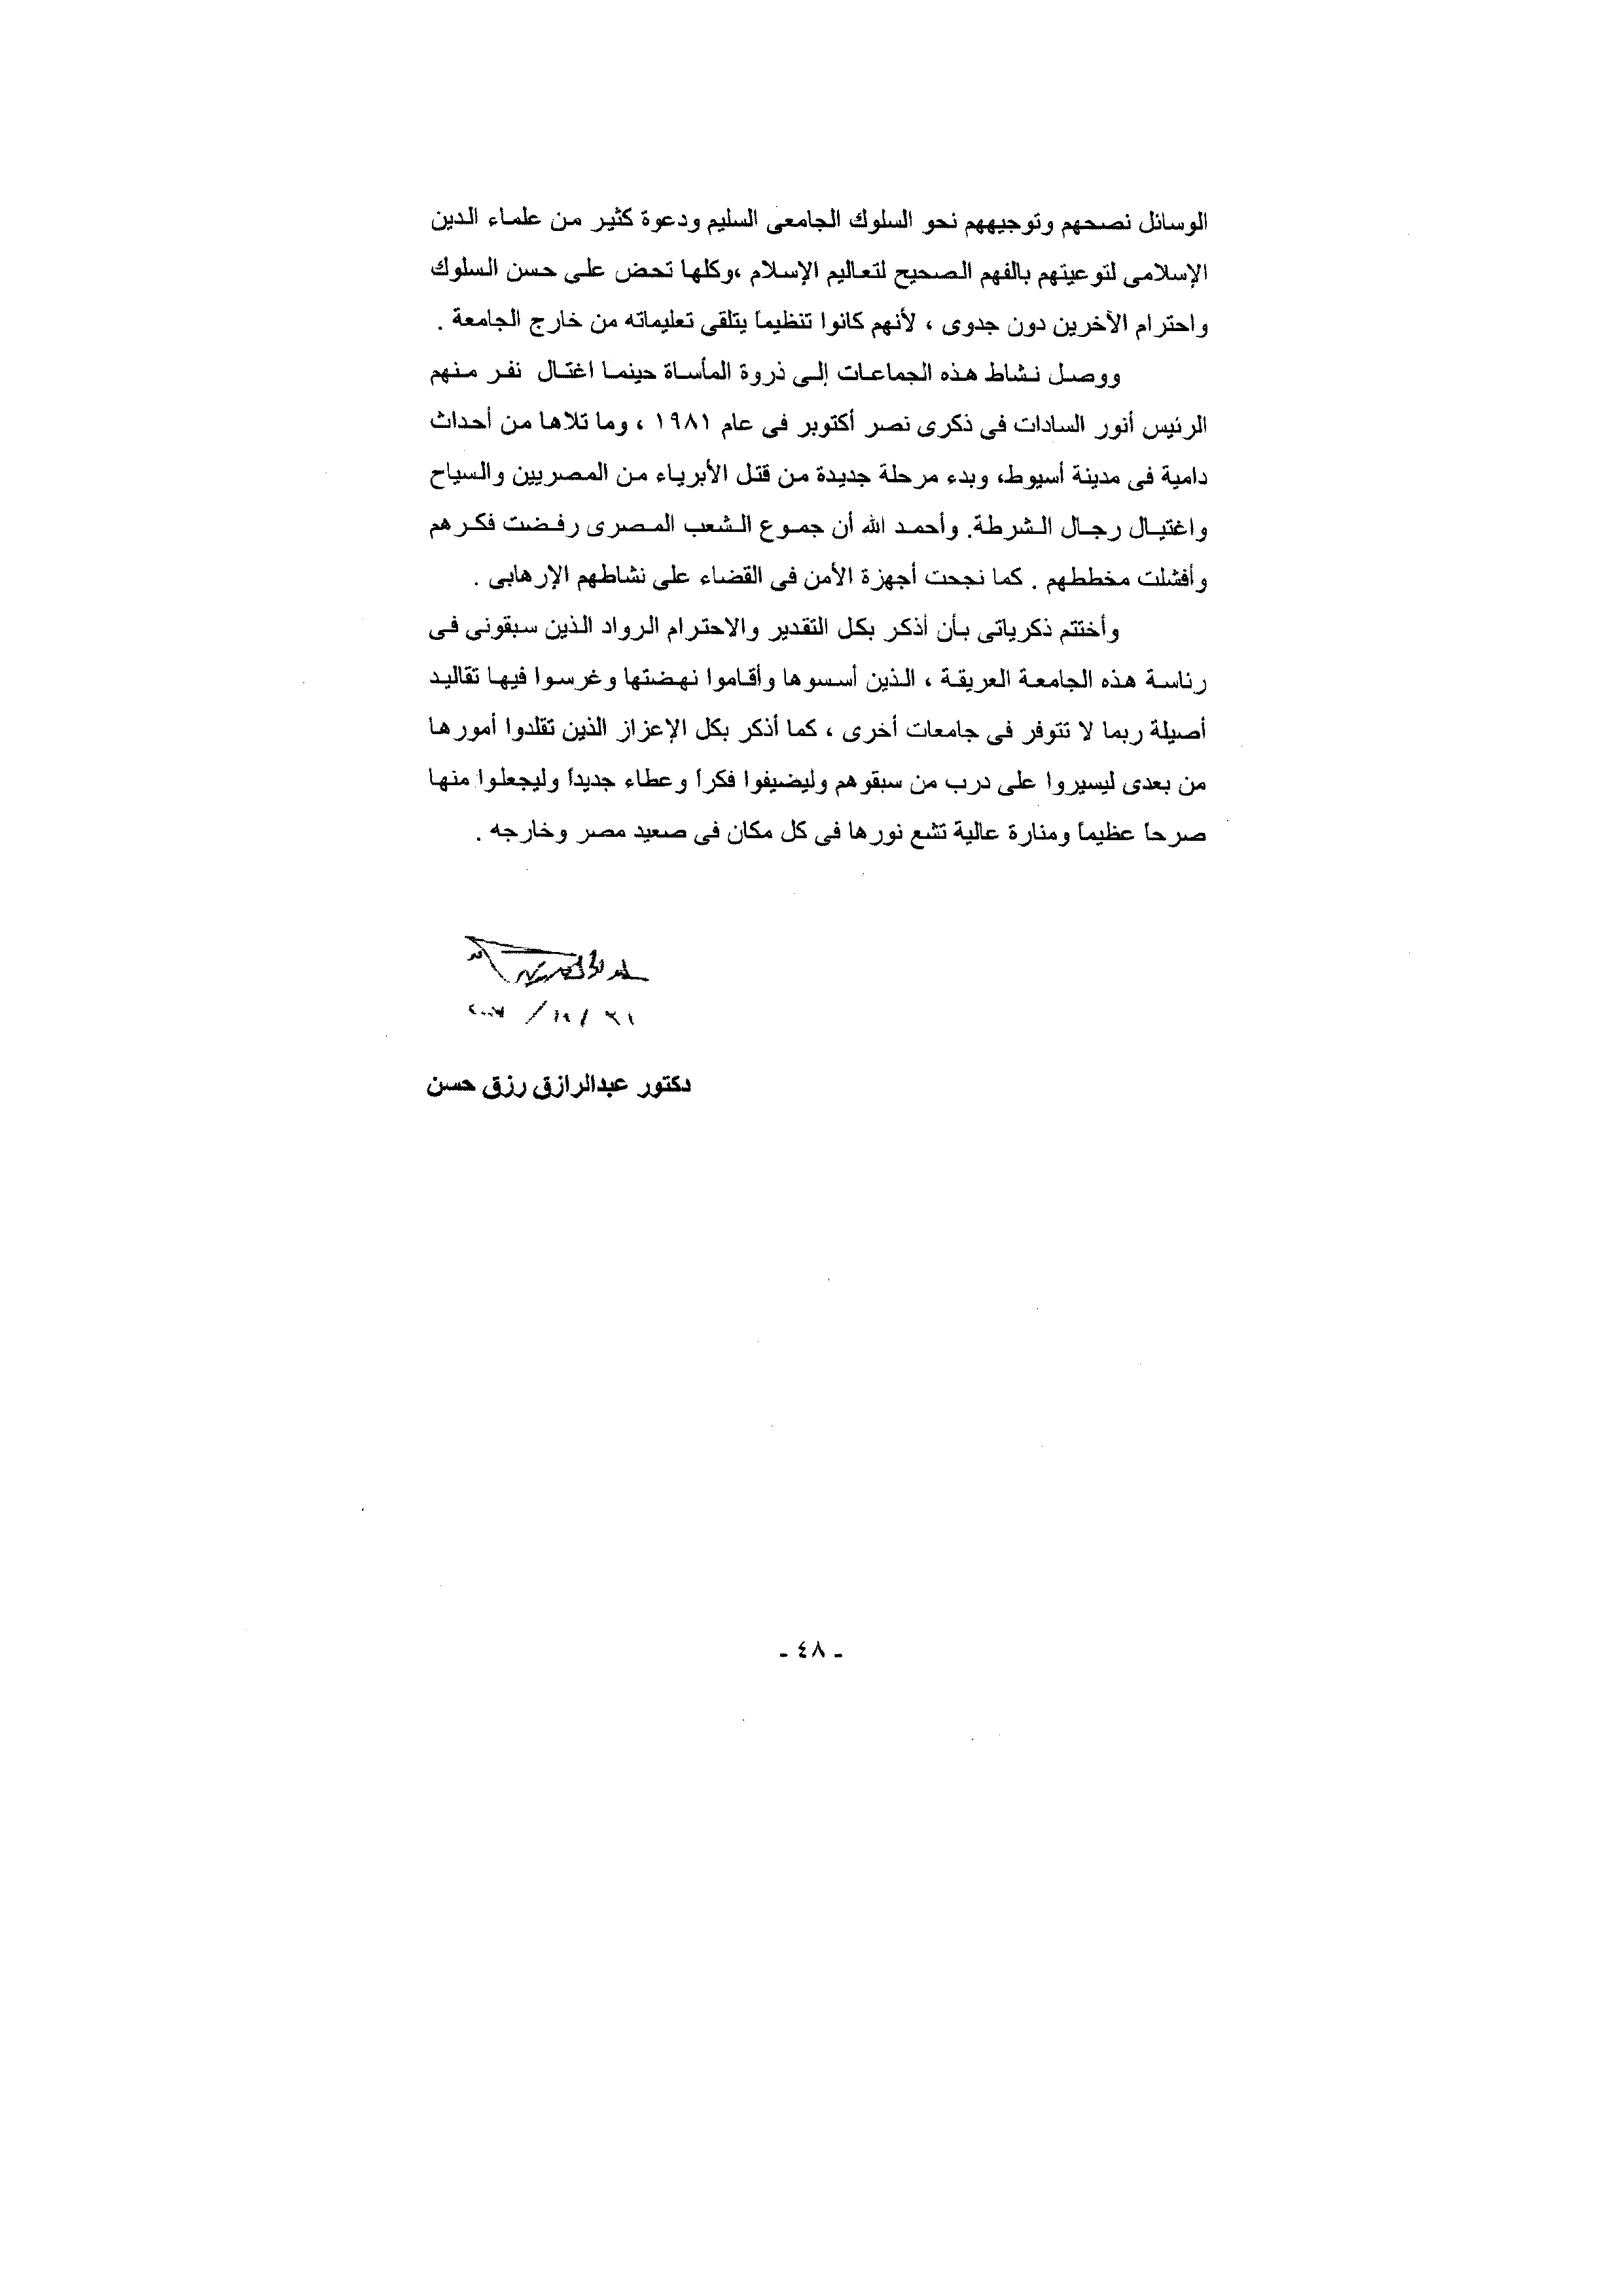 الوسائل نصحهم وتوجيههم نحو السلوك الجامعى السليم ودعوة كثير من علماء الدين
الإسلامى لتوعيتهم بالفهم الصحيح لتعاليم الإسلام ،وكلها تحض على حسن السلوك
واحترام الآخرين دون جدوى ، لأنهم كانوا تنظيماً يتلقى تعليماته من خارج الجامعة .
ووصل نشاط هذه الجماعات إلى ذروة المأساة حينما اغتال نفر منهم
الرئيس أنور السادات فى ذكرى نصر أكتوبر فى عام ١٩٨١ ، وما تلاها من أحداث
دامية فى مدينة أسيوط، وبدء مرحلة جديدة من قتل الأبرياء من المصريين والسياح
واغتيال رجال الشرطة. وأحمد الله أن جموع الشعب المصرى رفضت فكرهم
وأفشلت مخططهم . كما نجحت أجهزة الأمن فى القضاء على نشاطهم الإرهابى .
وأختتم ذكرياتى بأن أذكر بكل التقدير والاحترام الرواد الذين سبقونى فى
رئاسة هذه الجامعة العريقة ، الذين أسسوها وأقاموا نهضتها وغرسوا فيها تقاليد
أصيلة ربما لا تتوفر فى جامعات أخرى ، كما أذكر بكل الإعزاز الذين تقلدوا أمورها
من بعدى ليسيروا على درب من سبقوهم وليضيفوا فكراً وعطاء جديداً وليجعلوا منها
صرحاً عظيماً ومنارة عالية تشع نورها فى كل مكان فى صعيد مصر وخارجه .
دكتور عبدالرازق رزق حسن
- ٤٨ -